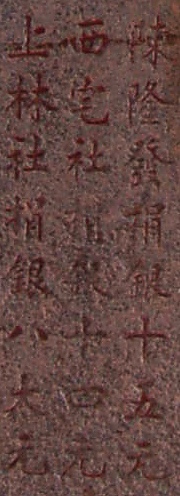 陳隆發捐銀十五元
西宅社捐銀十四元
上林社捐銀八大元